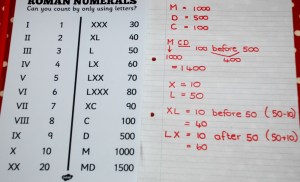 ROMAN NUMERALS
Can you count by only using letters?
I 1 XXX 30
II 2 XL 40
III 3 L 50
IV 4 LX 60
V 5 LXX 70
VI 6 LXXX 80
VII 7 XC 90
VIII 8 C 100
IX 9 D 500
X 10 M 1000
XX 20 MD 1500
M = 1000
D = 500
C = 100
M CD 100 before 500
1000 400
= 1400
X = 10
L = 50
XL = 10 before 50 (50-10)
= 40
LX = 10 after 50 (50+10)
= 60